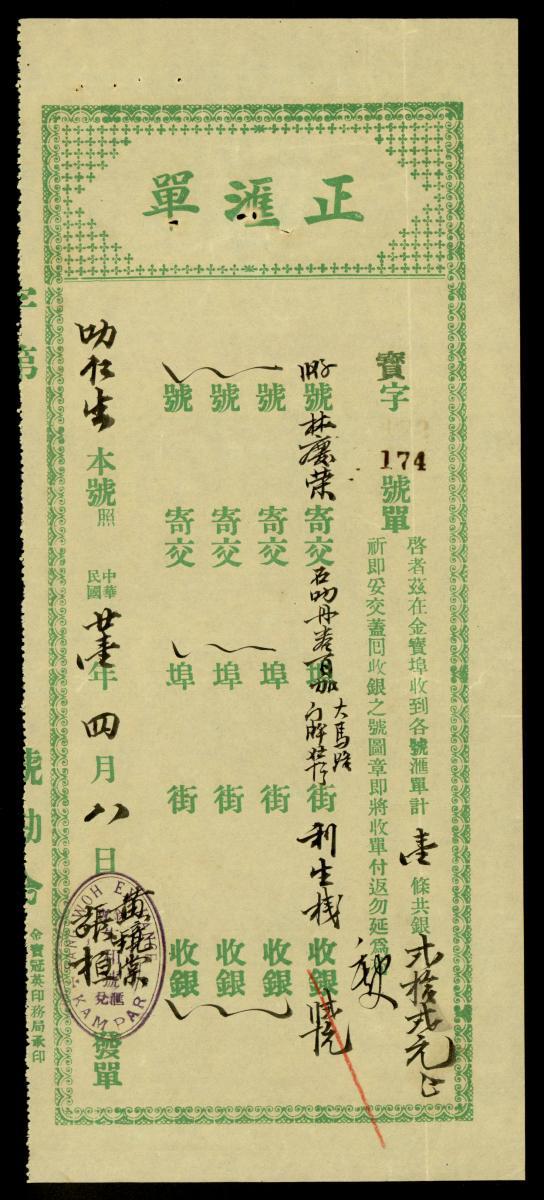 正滙單
寶字
174
號單
啓者茲在金寶埠收到各號滙單計壹條共銀弍拾弍元正
祈即妥交蓋囘收銀之號圖章即將收單付返勿延爲
號林慶荣寄交埠大馬路街利生棧收銀
號寄交埠街收銀
號寄交埠街收銀
號寄交埠街收銀
叻仁生本號照
中華民國廿壹年四月八日發單
WOH
KAMPAR
滙兌
字第
號勘合
金寶冠英印務局承印